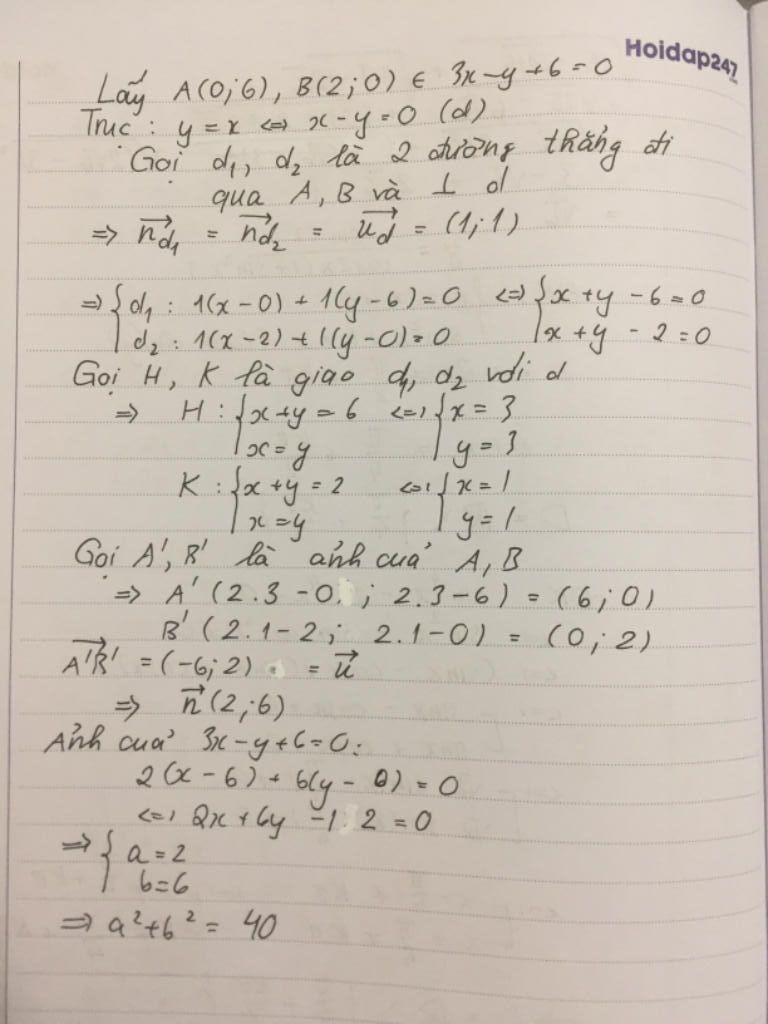 Hoidap247
Lấy A(0;6), B(2;0) ∈ 3x-y+6=0
Trục : y=x <=> x-y=0 (d)
Gọi d₁, d₂ là 2 đường thẳng đi
qua A, B và ⊥ d
=> n⃗d₁ = n⃗d₂ = u⃗d = (1;1)
=> { d₁ : 1(x-0) + 1(y-6)=0 <=> { x+y-6=0
d₂ : 1(x-2)+1(y-0)=0 x+y-2=0
Gọi H, K là giao d₁, d₂ với d
=> H : { x+y=6 <=> { x=3
x=y y=3
K : { x+y=2 <=> { x=1
x=y y=1
Gọi A', B' là ảnh của A, B
=> A' (2.3-0 ; 2.3-6) = (6;0)
B' (2.1-2; 2.1-0) = (0;2)
A'B'⃗ =(-6;2) = u⃗
=> n⃗ (2;6)
Ảnh của 3x-y+6=0:
2(x-6)+6(y-0)=0
<=> 2x+6y-12=0
=> { a=2
b=6
=> a²+b²= 40